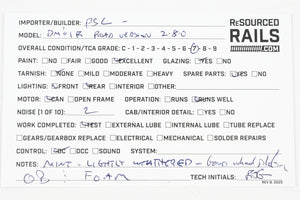 IMPORTER/BUILDER: PSC -
RESOURCED RAILS .COM
MODEL: ROAD VERSION 2-8-0
OVERALL CONDITION/TCA GRADE: C - 1 - 2 - 3 - 4 - 5 - 6 - 7 - 8 - 9
PAINT: NO FAIR GOOD EXCELLENT GLAZING: YES NO
TARNISH: NONE MILD MODERATE HEAVY SPARE PARTS: YES NO
LIGHTING: FRONT REAR INTERIOR OTHER:
MOTOR: CAN OPEN FRAME OPERATION: RUNS RUNS WELL
NOISE (1 OF 10): 2 CAB/INTERIOR DETAIL: YES NO
WORK COMPLETED: TEST EXTERNAL LUBE INTERNAL LUBE TUBE REPLACE
GEARS/GEARBOX REPLACE ELECTRICAL MECHANICAL SOLDER REPAIRS
CONTROL: DC DCC SOUND SYSTEM:
NOTES: MINT - LIGHTLY WEATHERED - Good wheel
OB : FOAM TECH INITIALS:
REV 8. 2025